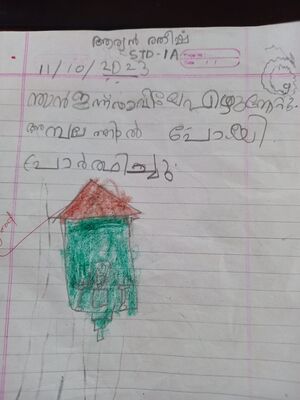 ആര്യൻ രതീഷ്
STD-1A
11/10/2023
ഞാൻ ഇന്ന് രാവിലേ എഴുന്നേറ്റു.
അമ്പലത്തിൽ പോയി
പ്രാർത്ഥിച്ചു.